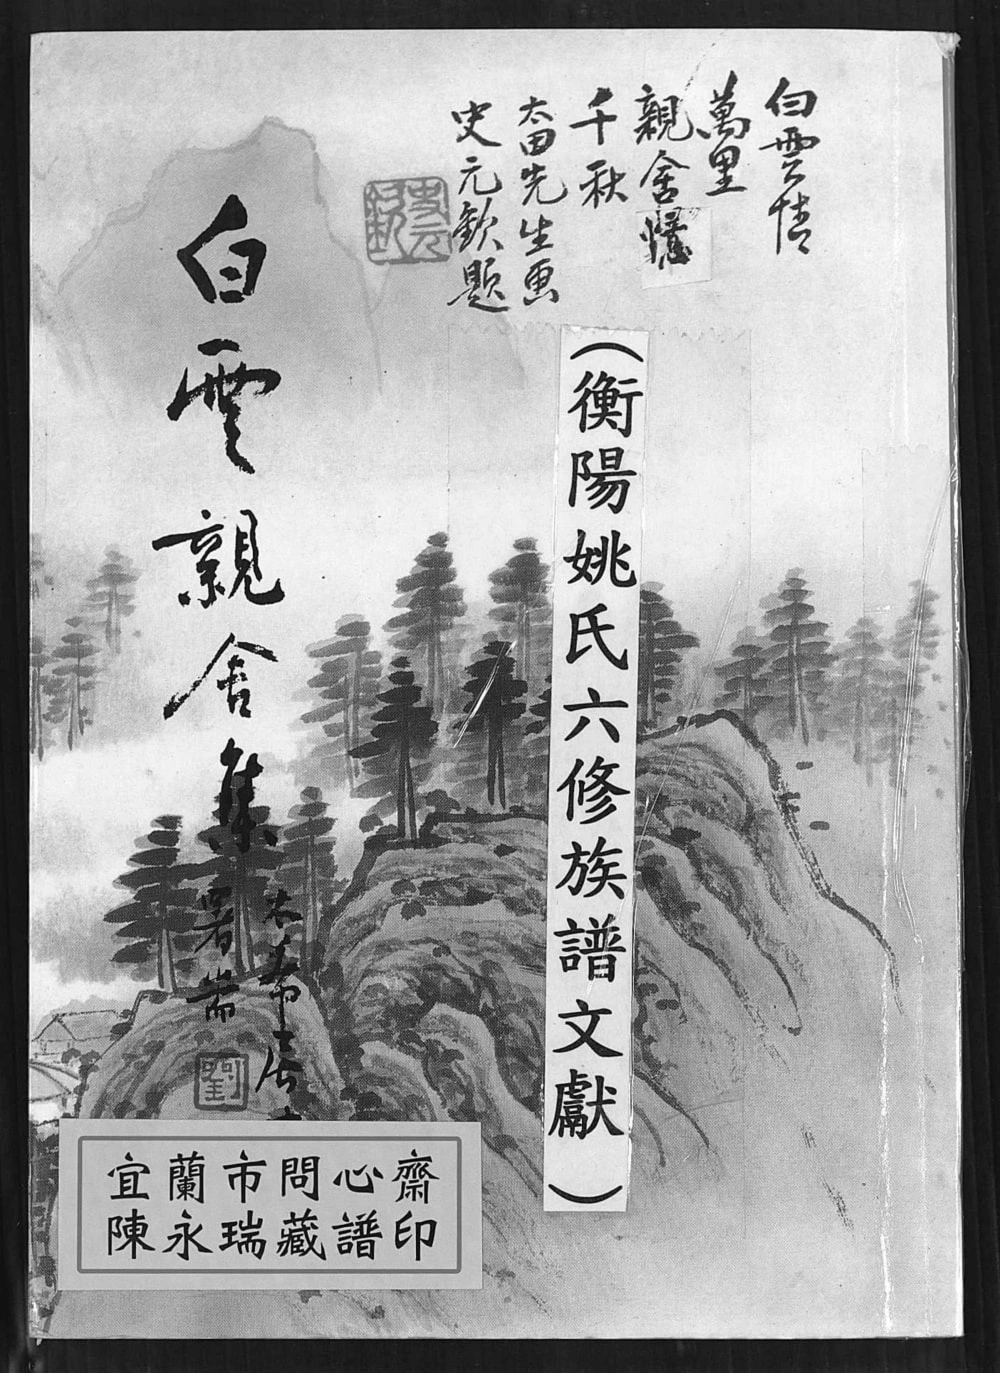 白雲情
萬里
親舍懷
千秋
太田先生画
史元欽題
史元欽
(衡陽姚氏六修族譜文獻)
白雲親舍集
署耑
宜蘭市問心齋
陳永瑞藏譜印